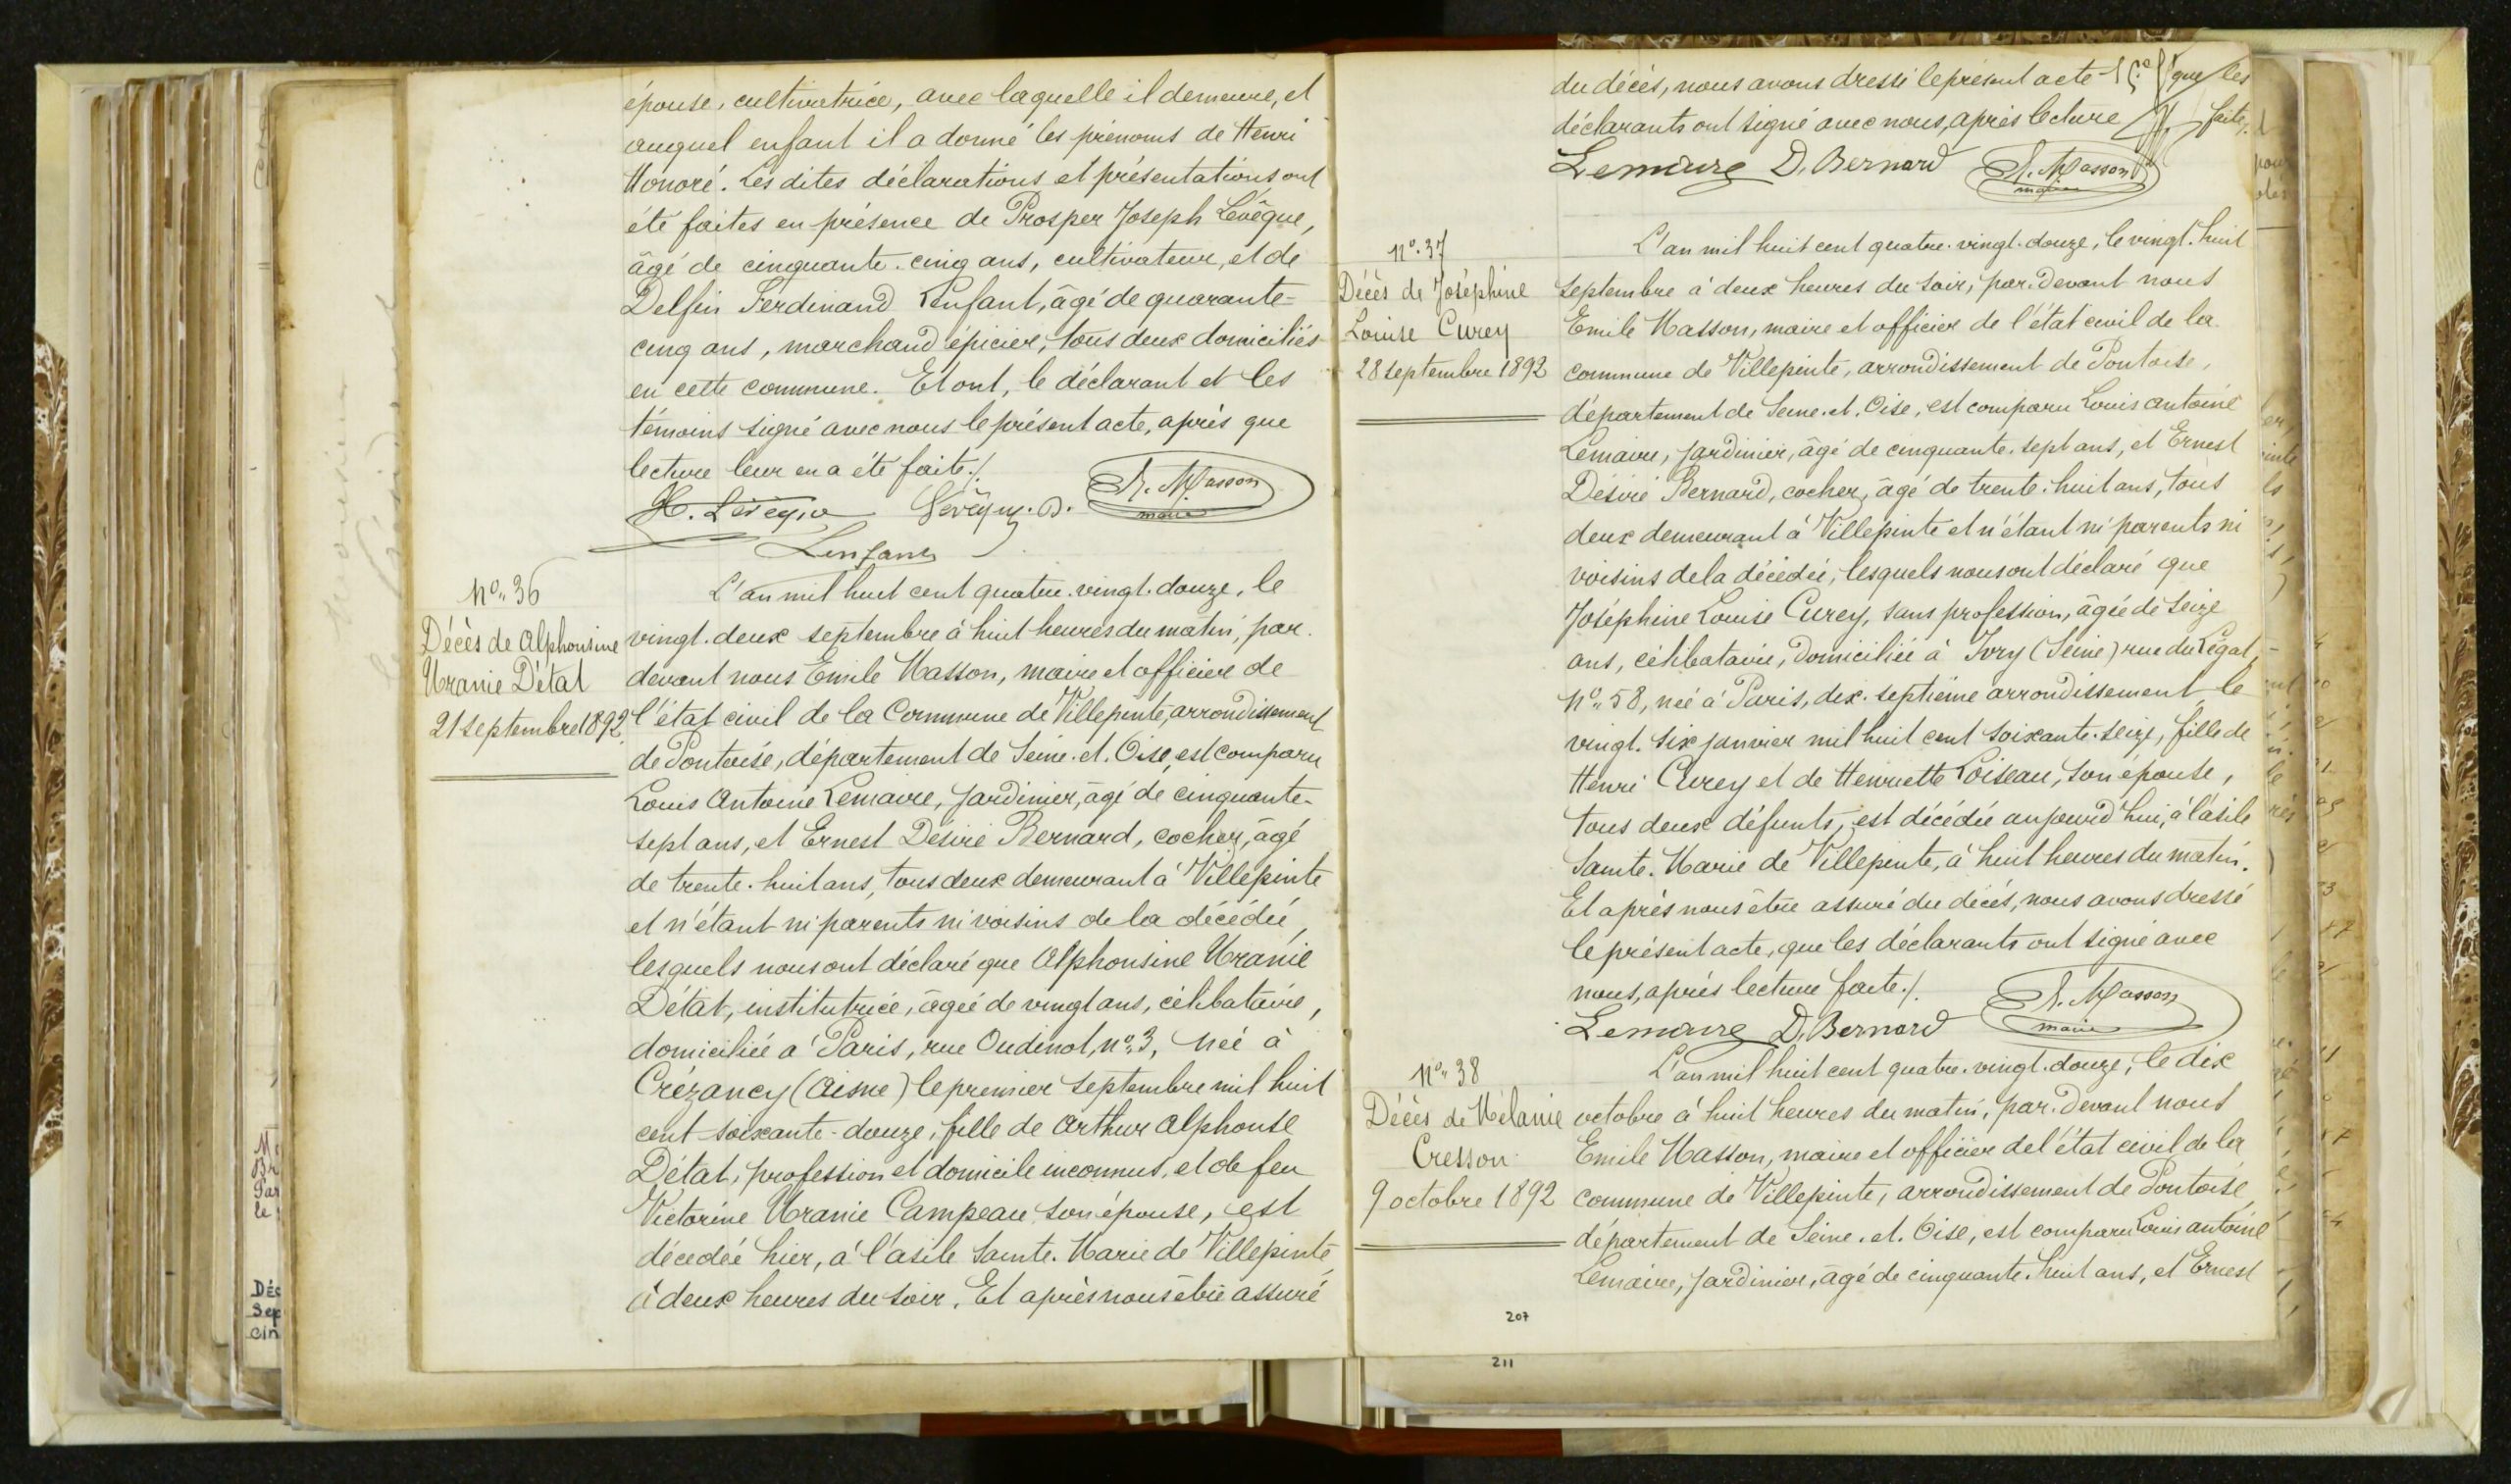 épouse, cultivatrice, avec laquelle il demeure, et
auquel enfant il a donné les prénoms de Henri
Honoré. Les dites déclarations et présentations ont
été faites en présence de Prosper Joseph Lévêque,
âgé de cinquante-cinq ans, cultivateur, et de
Delfin Ferdinand Lenfant, âgé de quarante=
cinq ans, marchand épicier, tous deux domiciliés
en cette commune. Et ont, le déclarant et les
témoins signé avec nous le présent acte, après que
lecture leur en a été faite./.
H. Lévêque Lévêque. D. E. Masson
maire
Lenfant
No. 36
Décès de Alphonsine
Uranie Détat
21 septembre 1892
L'an mil huit cent quatre-vingt-douze, le
vingt-deux septembre à huit heures du matin, par-
devant nous Emile Masson, maire et officier de
l'état civil de la Commune de Villepinte, arrondissement
de Pontoise, département de Seine-et-Oise, est comparu
Louis Antoine Lemaire, jardinier, âgé de cinquante-
sept ans, et Ernest Désiré Bernard, cocher, âgé
de trente-huit ans, tous deux demeurant à Villepinte
et n'étant ni parents ni voisins de la décédée,
lesquels nous ont déclaré que Alphonsine Uranie
Détat, institutrice, âgée de vingt ans, célibataire,
domiciliée à Paris, rue Oudinot, no. 3, née à
Crézancy (Aisne) le premier septembre mil huit
cent soixante-douze, fille de Arthur Alphonse
Détat, profession et domicile inconnus, et de feu
Victorine Uranie Campeau son épouse, est
décédée hier, à l'asile Sainte-Marie de Villepinte,
à deux heures du soir. Et après nous être assuré
du décès, nous avons dressé le présent acte que les
déclarants ont signé avec nous, après lecture faite./.
Lemaire D. Bernard E. Masson
maire
No. 37
Décès de Joséphine
Louise Curey
28 septembre 1892
L'an mil huit cent quatre-vingt-douze, le vingt-huit
septembre à deux heures du soir, par-devant nous
Emile Masson, maire et officier de l'état civil de la
commune de Villepinte, arrondissement de Pontoise,
département de Seine-et-Oise, est comparu Louis Antoine
Lemaire, jardinier, âgé de cinquante-sept ans, et Ernest
Désiré Bernard, cocher, âgé de trente-huit ans, tous
deux demeurant à Villepinte et n'étant ni parents ni
voisins de la décédée, lesquels nous ont déclaré que
Joséphine Louise Curey, sans profession, âgée de seize
ans, célibataire, domiciliée à Ivry (Seine) rue du Légat,
No. 58, née à Paris, dix-septième arrondissement, le
vingt-six janvier mil huit cent soixante-seize, fille de
Henri Curey et de Henriette Loiseau, son épouse,
tous deux défunts, est décédée aujourd'hui, à l'asile
Sainte-Marie de Villepinte, à huit heures du matin.
Et après nous être assuré du décès, nous avons dressé
le présent acte, que les déclarants ont signé avec
nous, après lecture faite./.
Lemaire D. Bernard E. Masson
maire
No. 38
Décès de Mélanie
Cresson
9 octobre 1892
L'an mil huit cent quatre-vingt-douze, le dix
octobre à huit heures du matin, par-devant nous
Emile Masson, maire et officier de l'état civil de la
commune de Villepinte, arrondissement de Pontoise,
département de Seine-et-Oise, est comparu Louis Antoine
Lemaire, jardinier, âgé de cinquante-huit ans, et Ernest
207
211